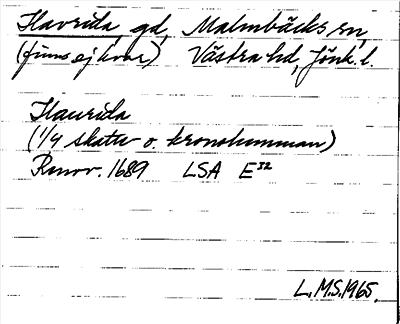 Havrida gd, Malmbäcks sn,
(finns ej kvar) Västra hd, Jönk. l.
Haurida
(1/4 skatte o. kronohemman)
Renov. 1689 LSA E32
L.M.S. 1965.